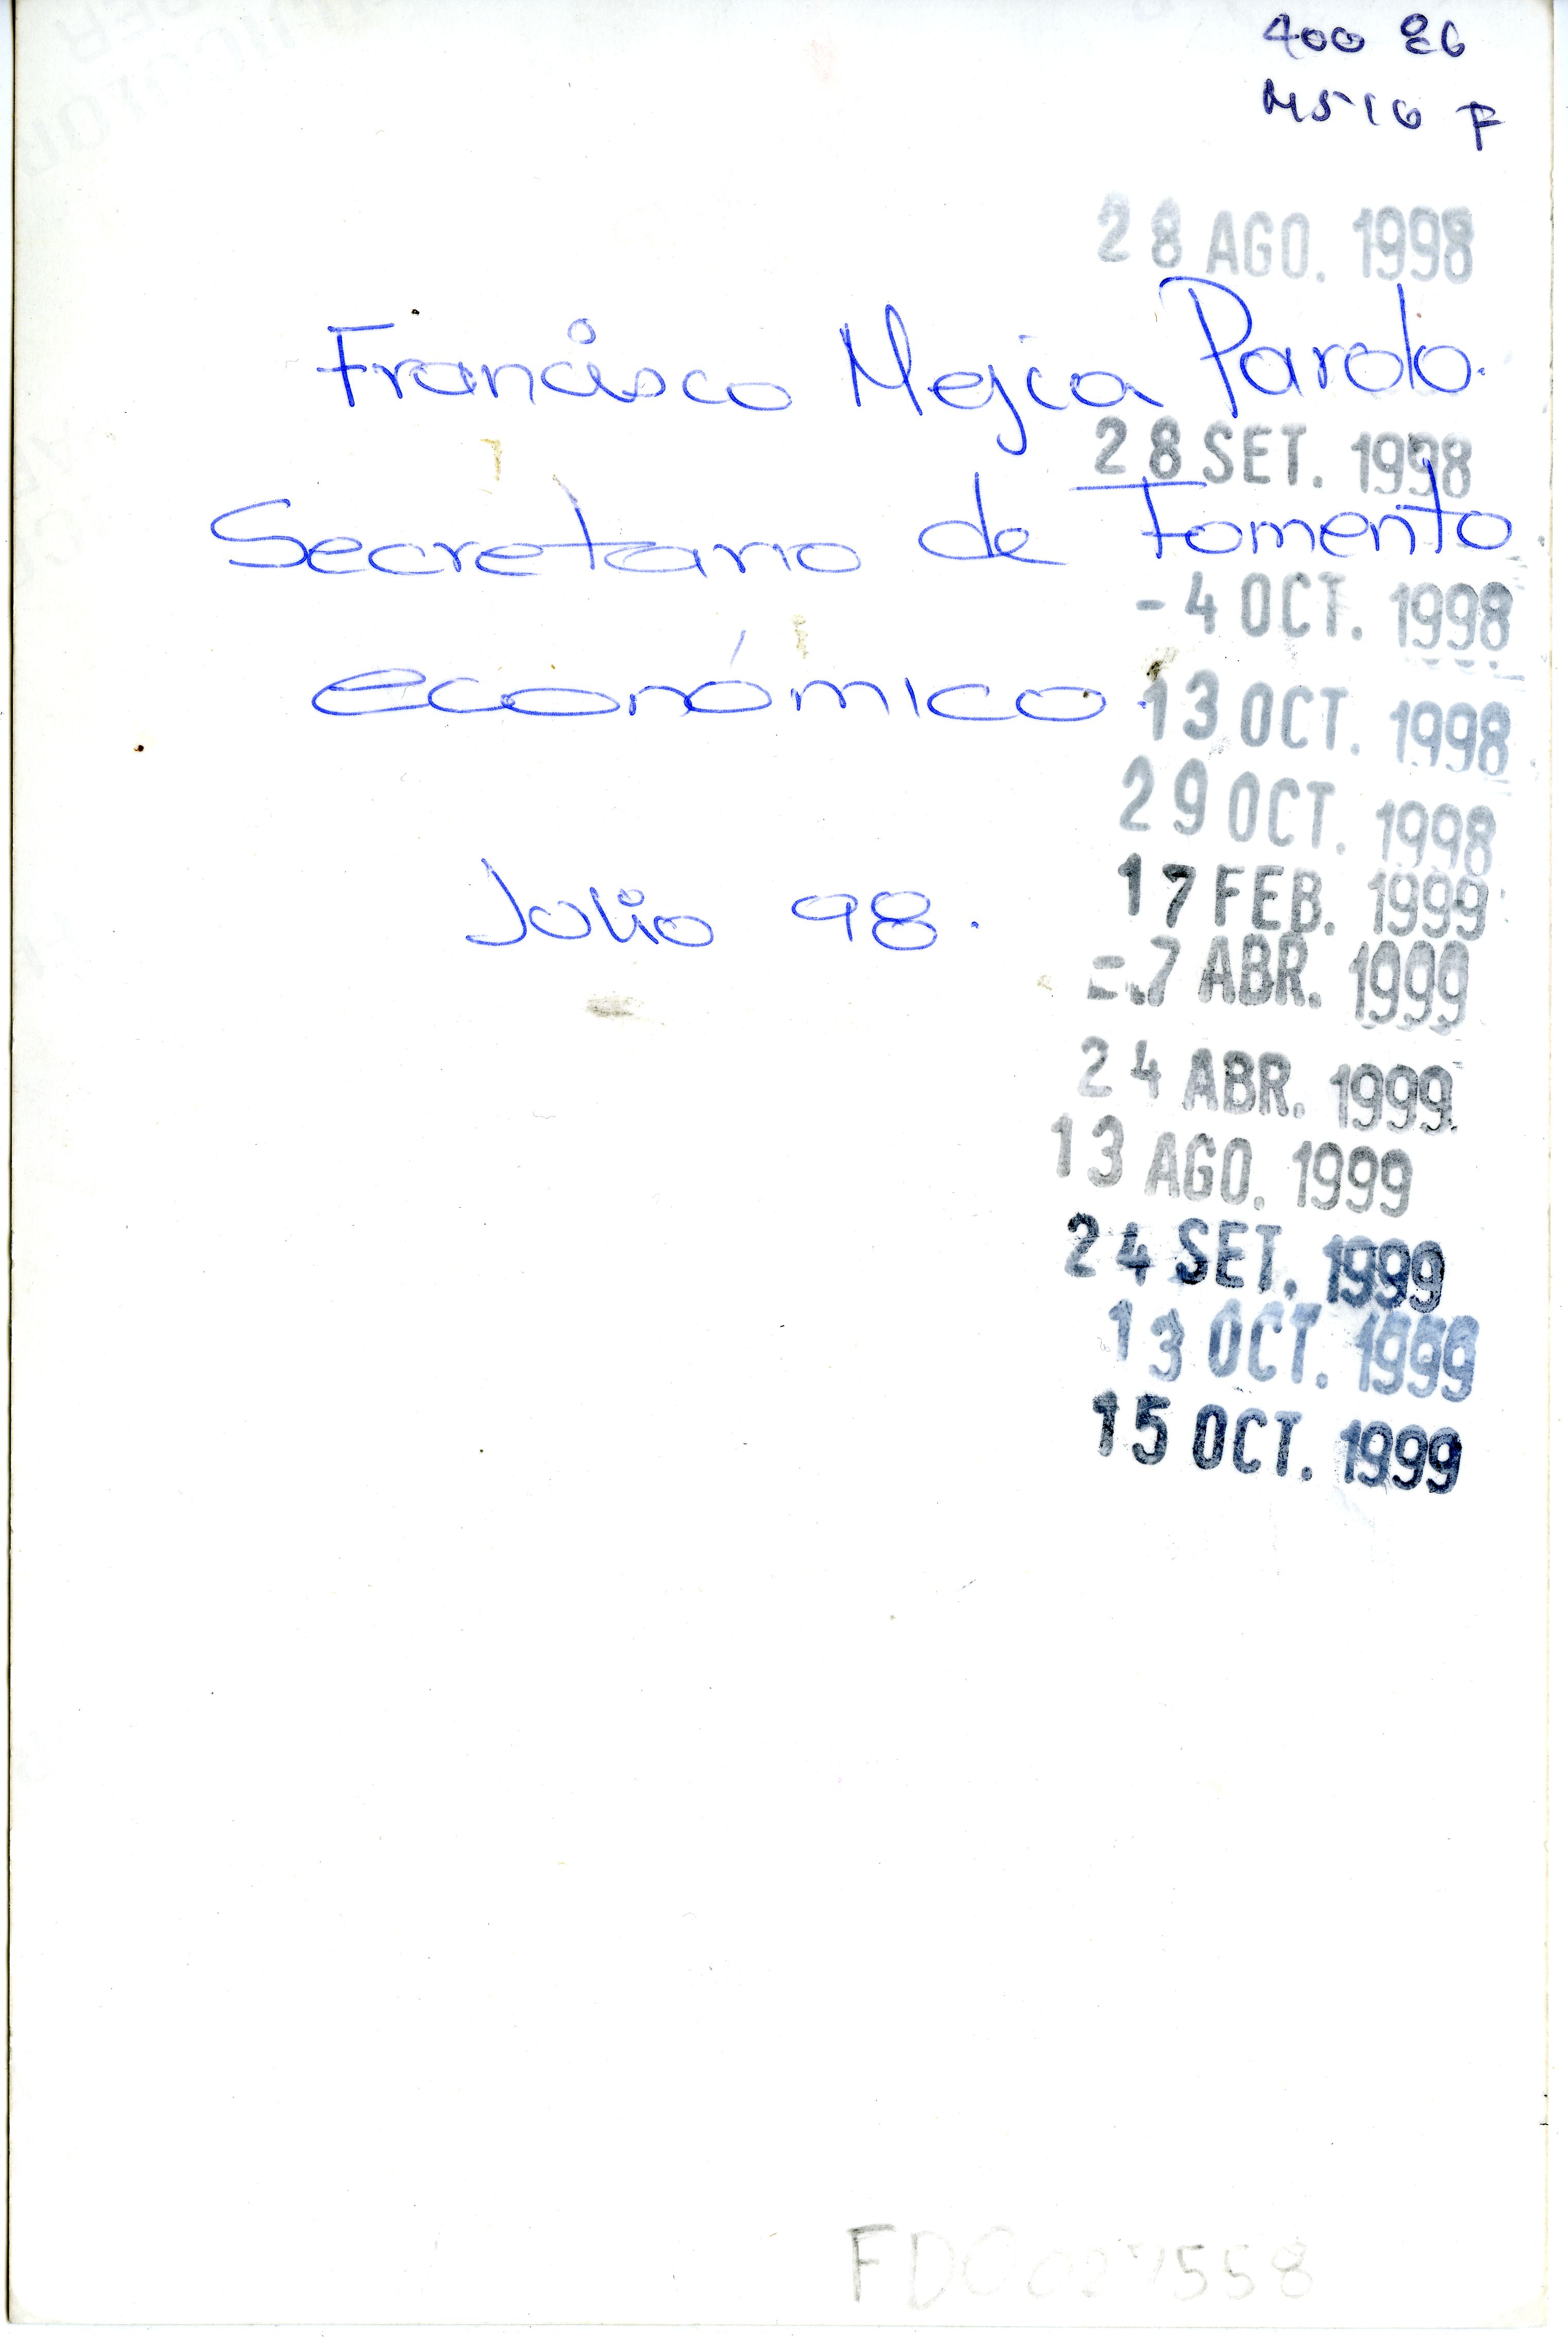 400 86
M516 F
28 AGO. 1998
Francisco Mejia Pardo.
28 SET. 1998
Secretario de Fomento
-4 OCT. 1998
económico.
13 OCT. 1998
29 OCT. 1998
17 FEB. 1999
Julio 98.
-7 ABR. 1999
24 ABR. 1999
13 AGO. 1999
24 SET. 1999
13 OCT. 1999
15 OCT. 1999